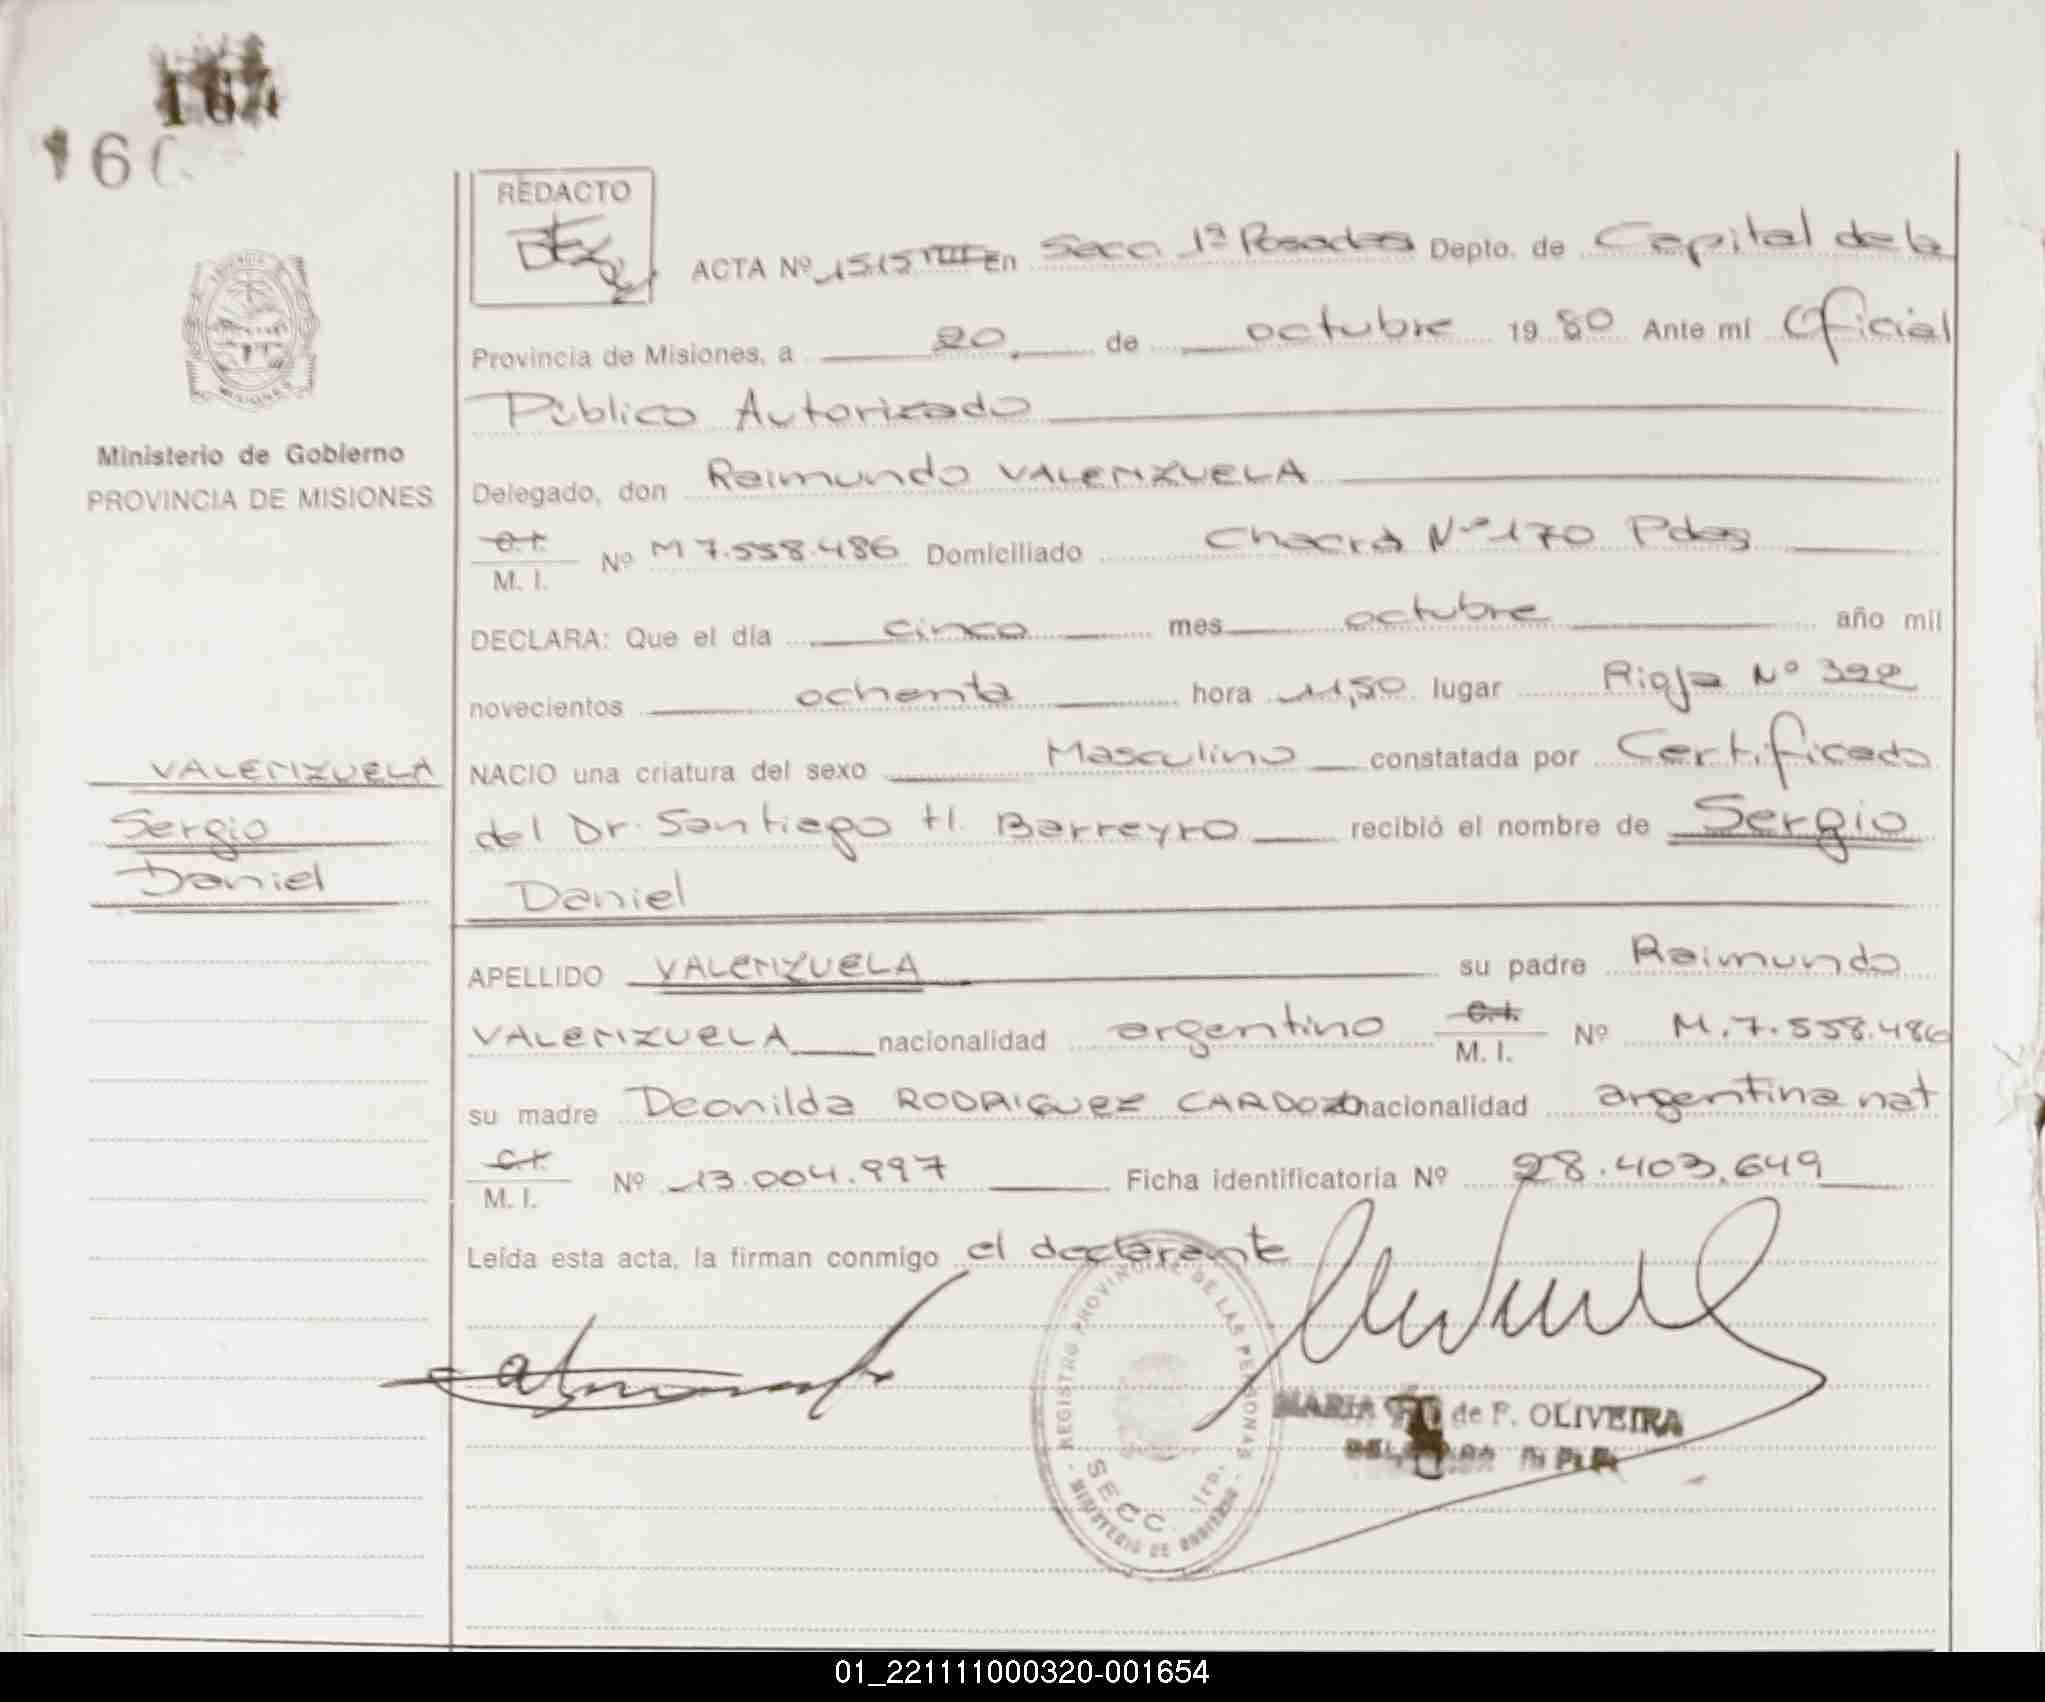 164
160
REDACTO
ACTA Nº 1515 TIII En Secc. 1ª Posadas Depto. de Capital de la
Provincia de Misiones, a 20 de octubre 1980 Ante mí Oficial
Público Autorizado
Ministerio de Gobierno
PROVINCIA DE MISIONES
Delegado, don Raimundo VALENZUELA
C.I.
M. I. Nº M 7.558.486 Domiciliado Chacra Nº 170 Pdas
DECLARA: Que el día cinco mes octubre año mil
novecientos ochenta hora 11,50 lugar Rioja Nº 392
VALENZUELA
Sergio
Daniel
NACIO una criatura del sexo Masculino constatada por Certificado
del Dr. Santiago H. Barreyro recibió el nombre de Sergio
Daniel
APELLIDO VALENZUELA su padre Raimundo
VALENZUELA nacionalidad argentino C.I.
M. I. Nº M.7.558.486
su madre Deonilda RODRIGUEZ CARDOZO nacionalidad argentina nat
C.I.
M. I. Nº 13.004.997 Ficha identificatoria Nº 28.403.649
Leída esta acta, la firman conmigo el declarante
REGISTRO PROVINCIAL DE LAS PERSONAS
SECC. 1ra.
MINISTERIO DE GOBIERNO
MARIA de F. OLIVEIRA
01_221111000320-001654